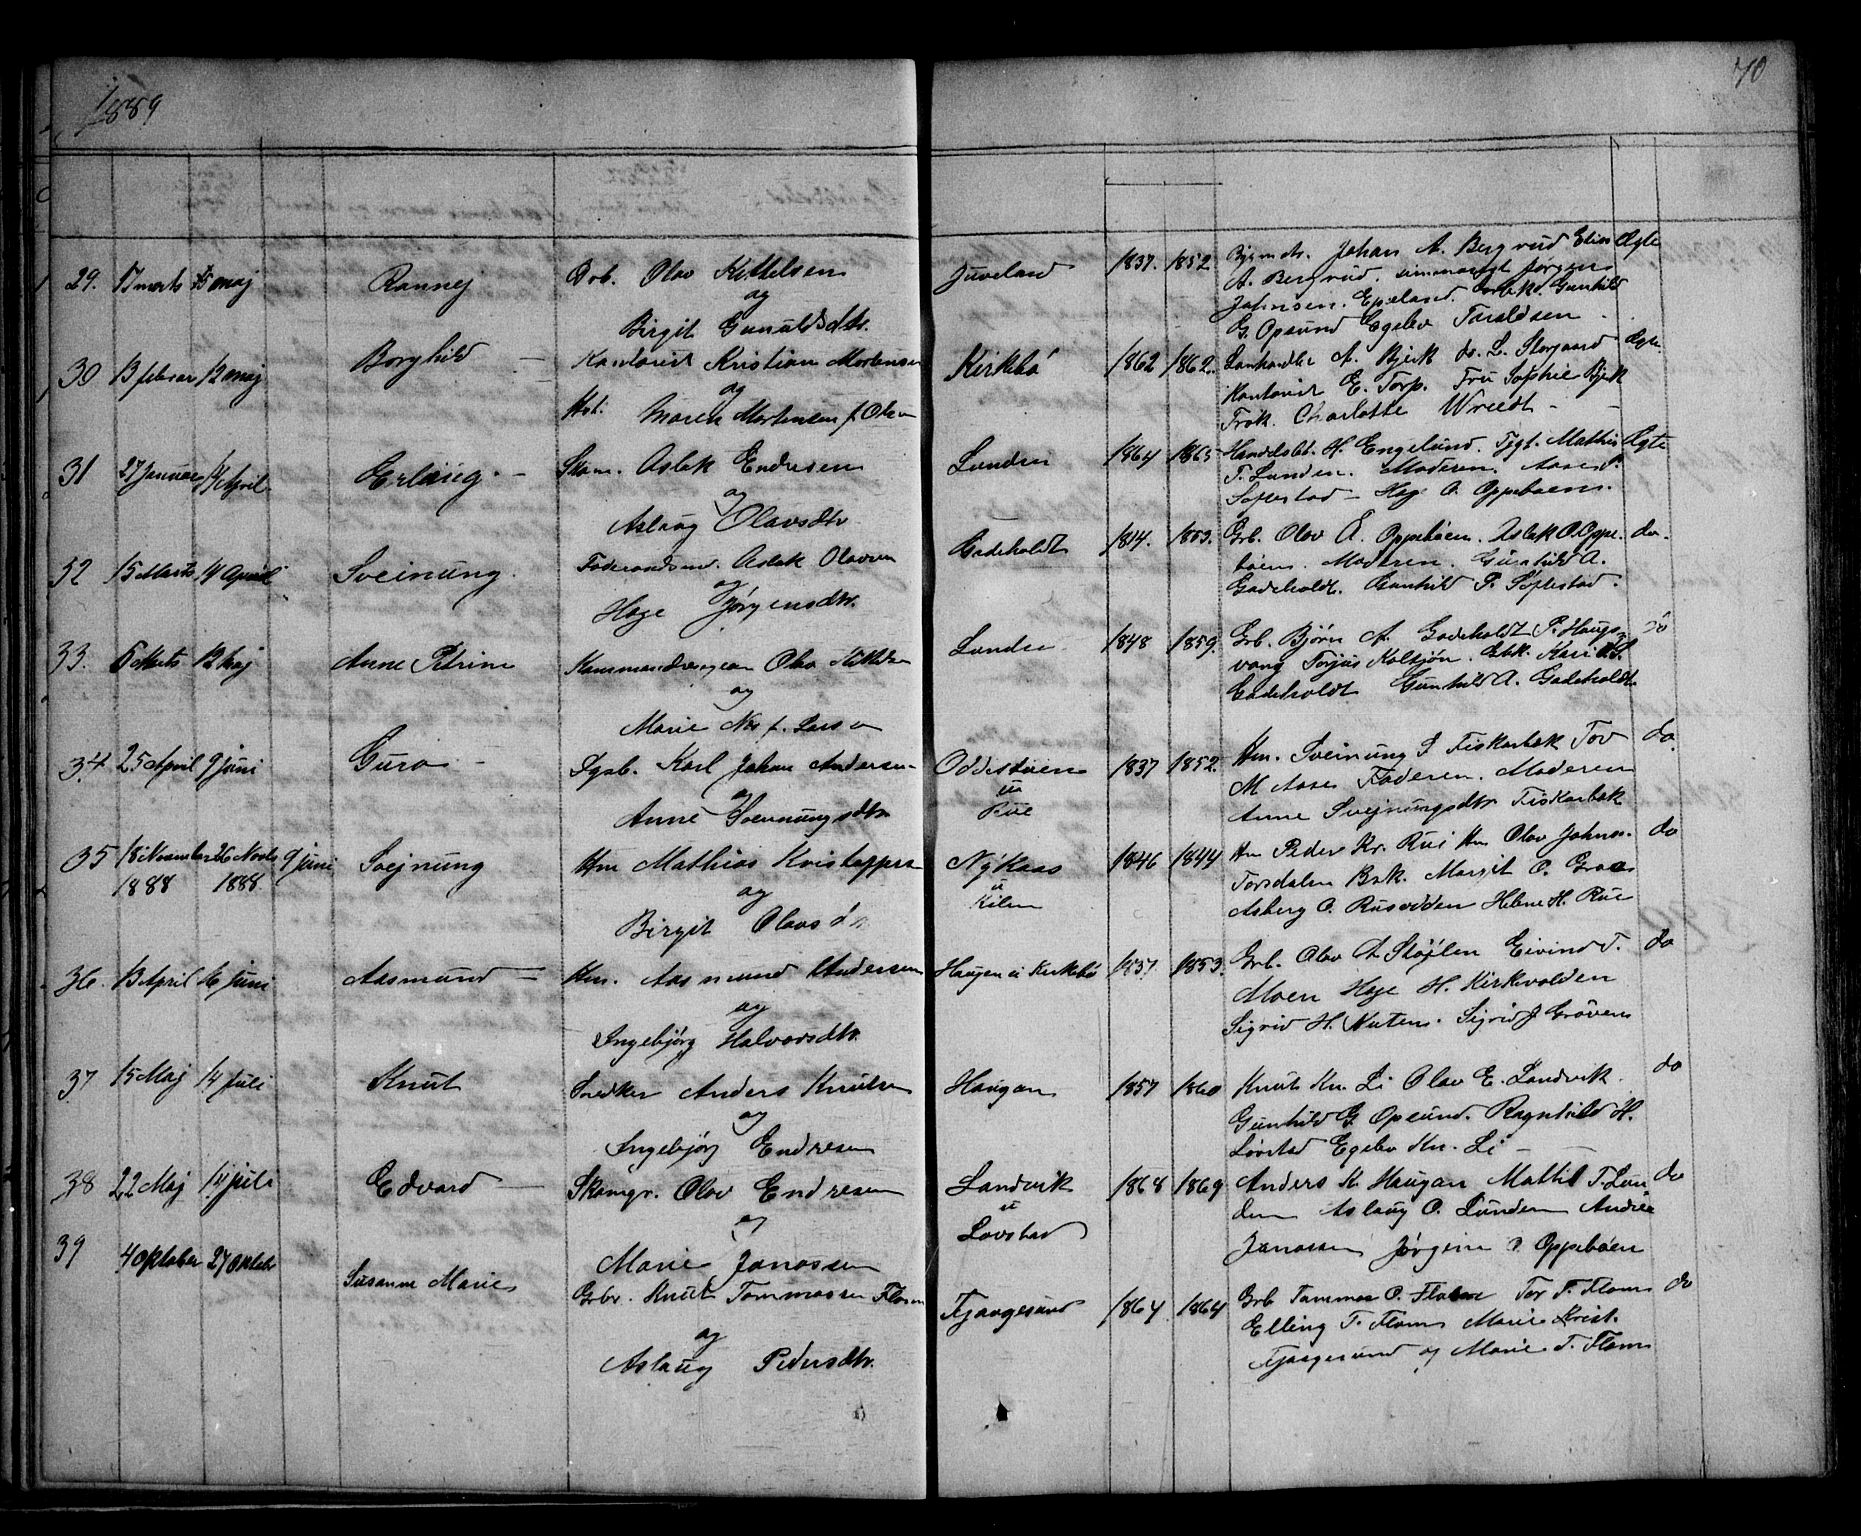 1889
70
29. 17 marts 5 maj Rannej Grb. Olav Kittelsen
og
Birgit Gunuldsdtr.
Juveland 1837. 1852 Johan A. Bergrud Elias Ægte
A. Bergrud. Jørgen
Johnsen. Epeland. Gunhild
G. Opsund Egelev Taraldsen
30 13 februar 12 maj Borghild Kontorist Kristian Mortensen
og
Hst. Maren Mortensen f. Olsen
Kirkebö 1862 1862. Landhandler A. Bjerk do. L. Storgaard Ægte
Kontorist E. Torp. Fru Sophie Bjerk
Frøk. Charlotte Wreedt
31 27 Januar 14 April Erlaug Skom. Aslak Endresen
og
Aslaug Olavsdtr
Lunden 1864 1865 Handelsbt. H. Engelund. Tjgt. Mathis Ægte
T. Lunden. Moderen. Aase P.
Søftestad Hage O. Oppebøen.
32 15 Marts 14 April Sveinung. Aslak Olavsen
og
Hage Jørgensdtr.
Gadeholdt 1814. 1853. Grb. Olav A. Oppebøen. Aslak O. Oppe- do.
bøen. Moderen. Gunhild A.
Gadeholdt. Gunhild P. Søftestad.
33. 5 Marts 12 Maj Anne Petrine Olav Kittelsen
og
Marie f. Larsen
Lunden 1848 1859. Grb. Bjørn A. Gadeholdt P. Haugs- do
vang Torjus Kolsjön. Gbk. Kari
Gadeholdt Gunhild A. Gadeholdt
34 25 April 9 juni Guro Karl Johan Andersen
og
Anne Sveinungsdtr
Oddestøien
u
Rue
1837 1852. Hm. Sveinung S Fiskarbæk Tov do.
M Aase Faderen. Moderen
Anne Svejnungsdtr Fiskarbæk
35 18 November 26 Novbr 9 juni Svejnung Hm Mathias Kristoppersen
1888 1888
og
Birgit Olavsdtr
Nykaas
u
Kilen
1846 1844 Hm Peder Kr. Rui Hm Olav Johns. do
Torsdalen Margit O. Graae
Asberg O. Rusvedden Helene H. Rue
36. 13 April 16 juni Aasmund Hm. Aasmund Andersen
og
Ingebjørg Halvorsdtr.
Haugen u Kirkebø 1837 1853. Grb. Olav A Støjlen Eivind T. do
Moen Hage H. Kirkevolden
Sigrid H. Nuten. Sigrid J Grøven
37. 15 Maj 14 Juli Knut Snedker Anders Knutsen
og
Ingebjörg Endresen
Haugan 1857 1860 Knut Kn. Li Olav E. Landvik. do
Gunhild G. Opsund. Ragnhild H.
Løvstad Egelev Kn. Li
38 22 Maj 14 juli Edvard Skomgr. Olav Endresen
og
Marie Janossen
Landvik
u
Lovstad
1868 1869 Anders K Haugan Mathis T. Lun- do
den Aslaug O. Lunden Andrea
Janossen Jørgine O. Oppebøen
39 4 Oktober 27 Oktober Susanne Marie Grbr. Knut Tommassen Flaten
og
Aslaug Pedersdtr.
Fjaagesund 1864 1864 Grb Tommas O. Tor T. Flom do
Elling T. Flom Marie Krist.
Fjaagesund og Marie T. Flom